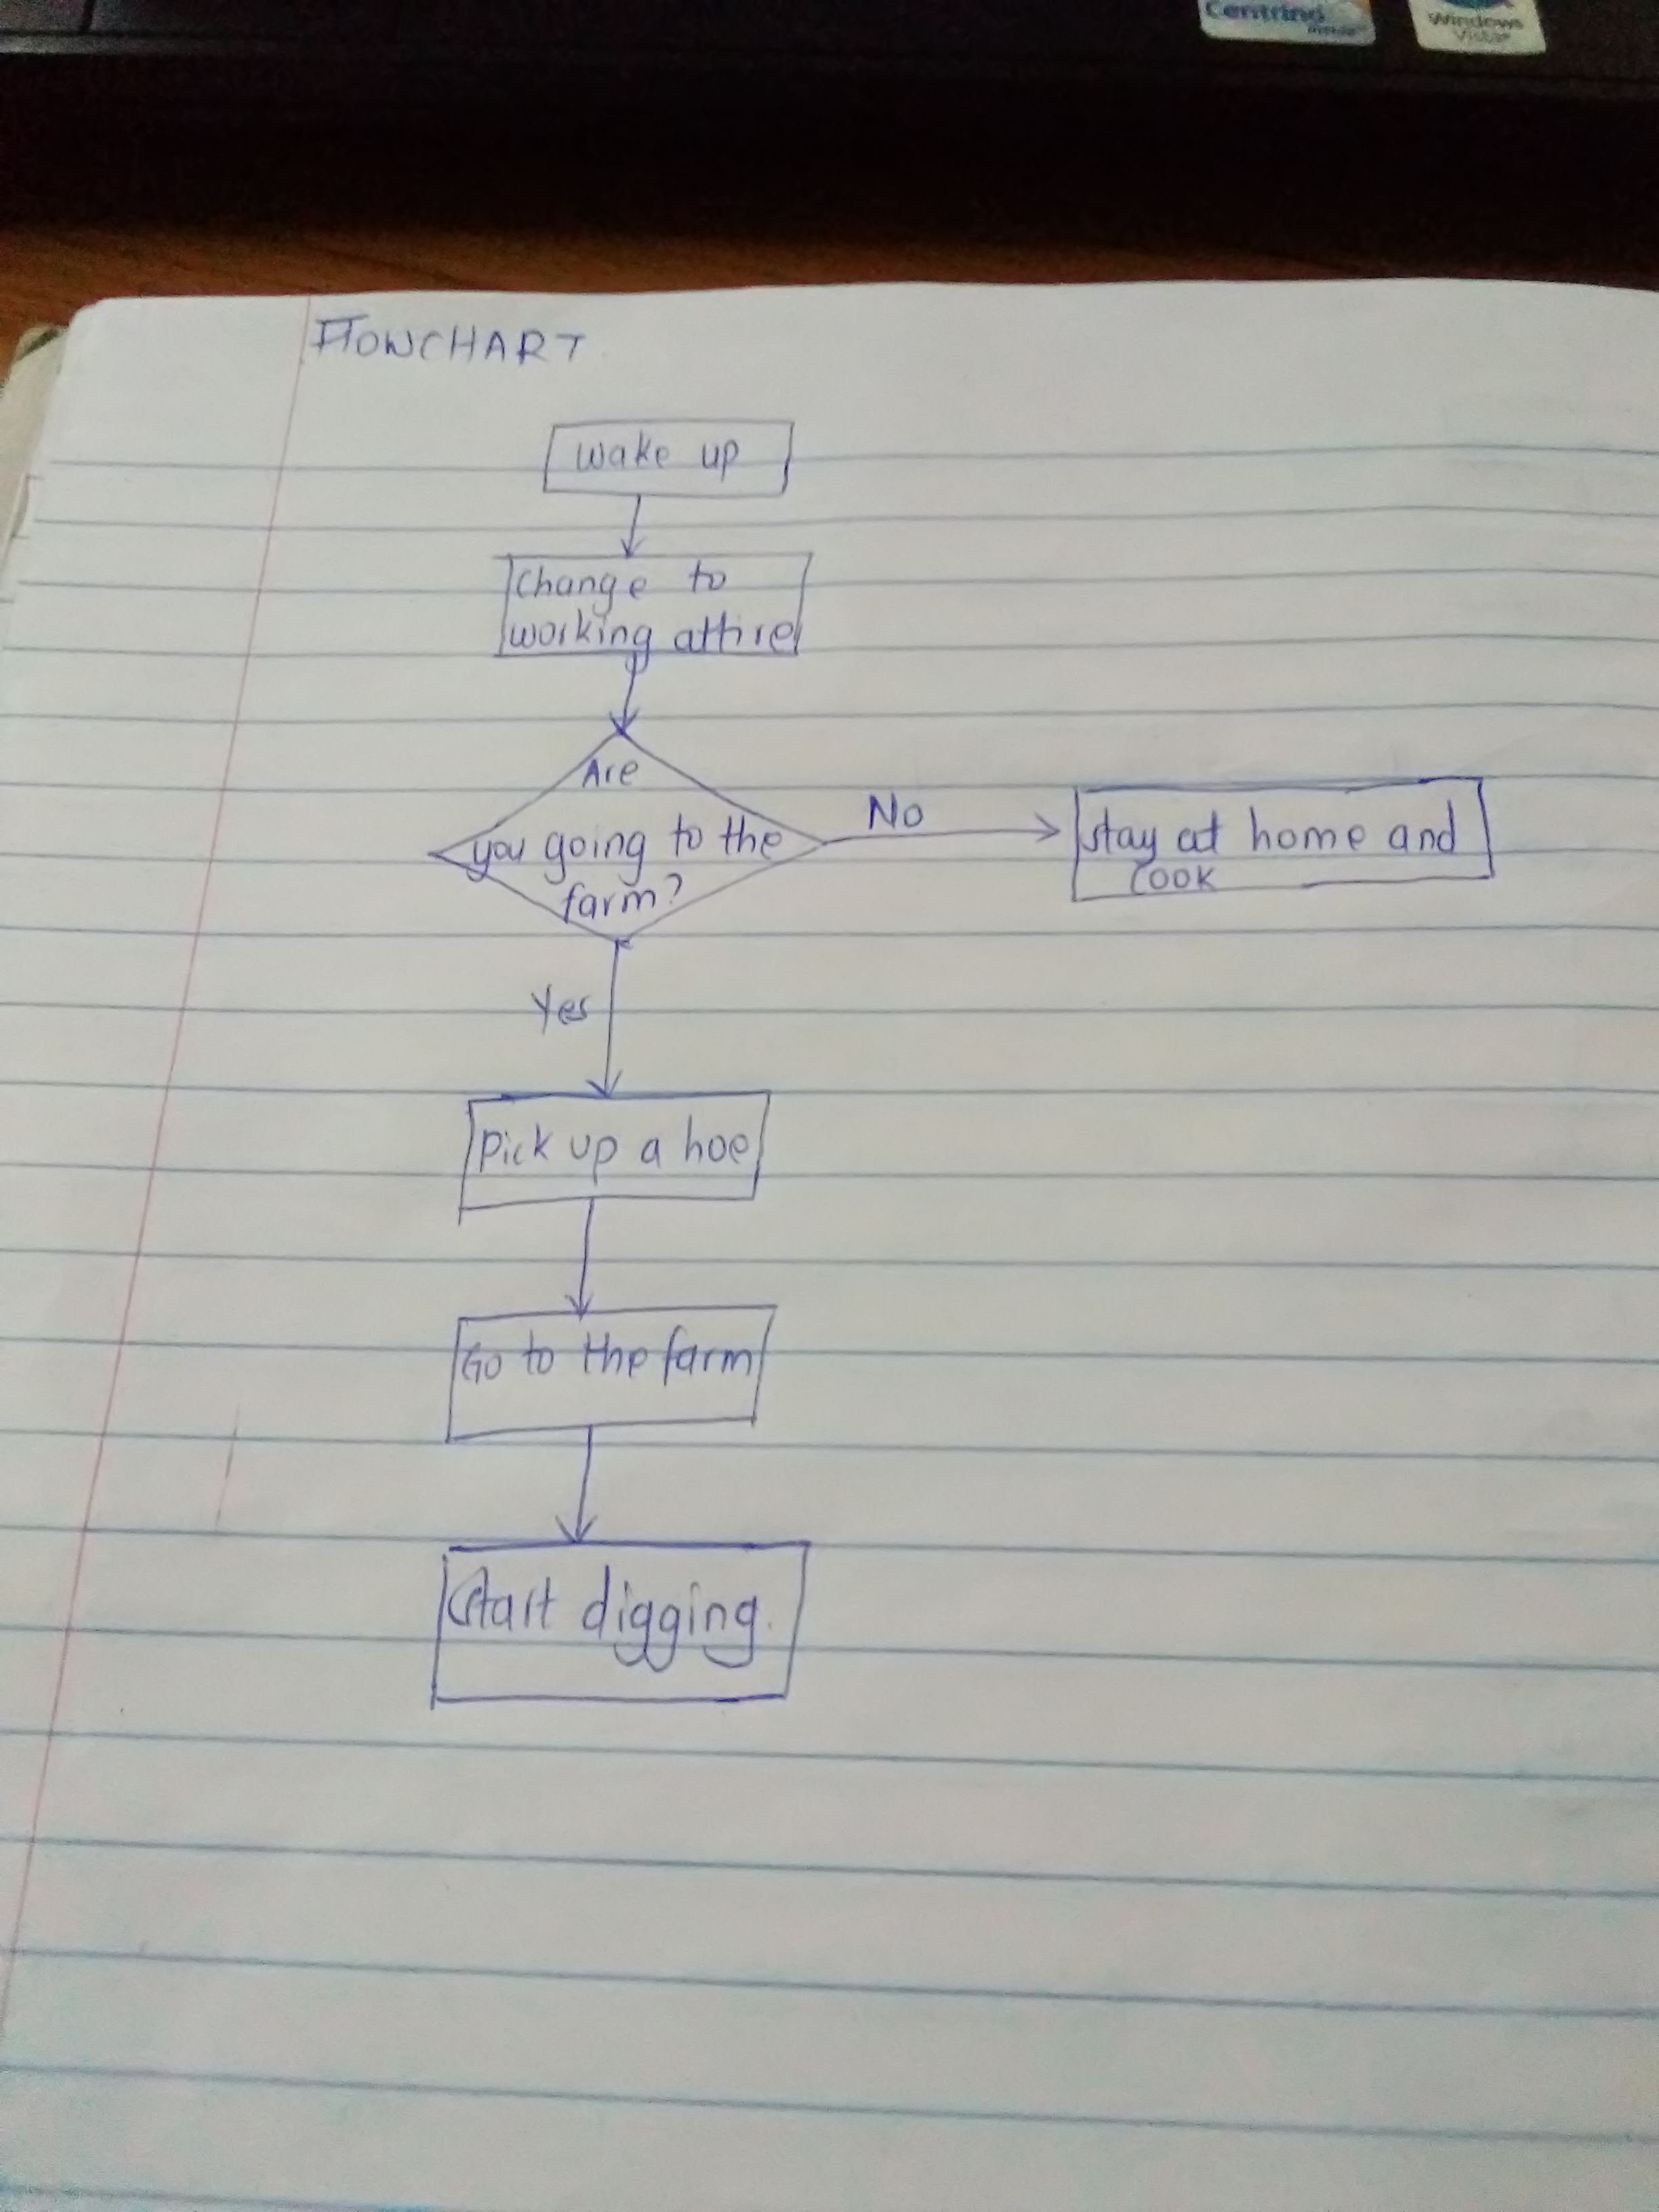 Centrino
inside
Windows
Vista
FLOWCHART
wake up
Change to
working attire
Are
you going to the
farm?
No
stay at home and
cook
Yes
Pick up a hoe
Go to the farm
Start digging.